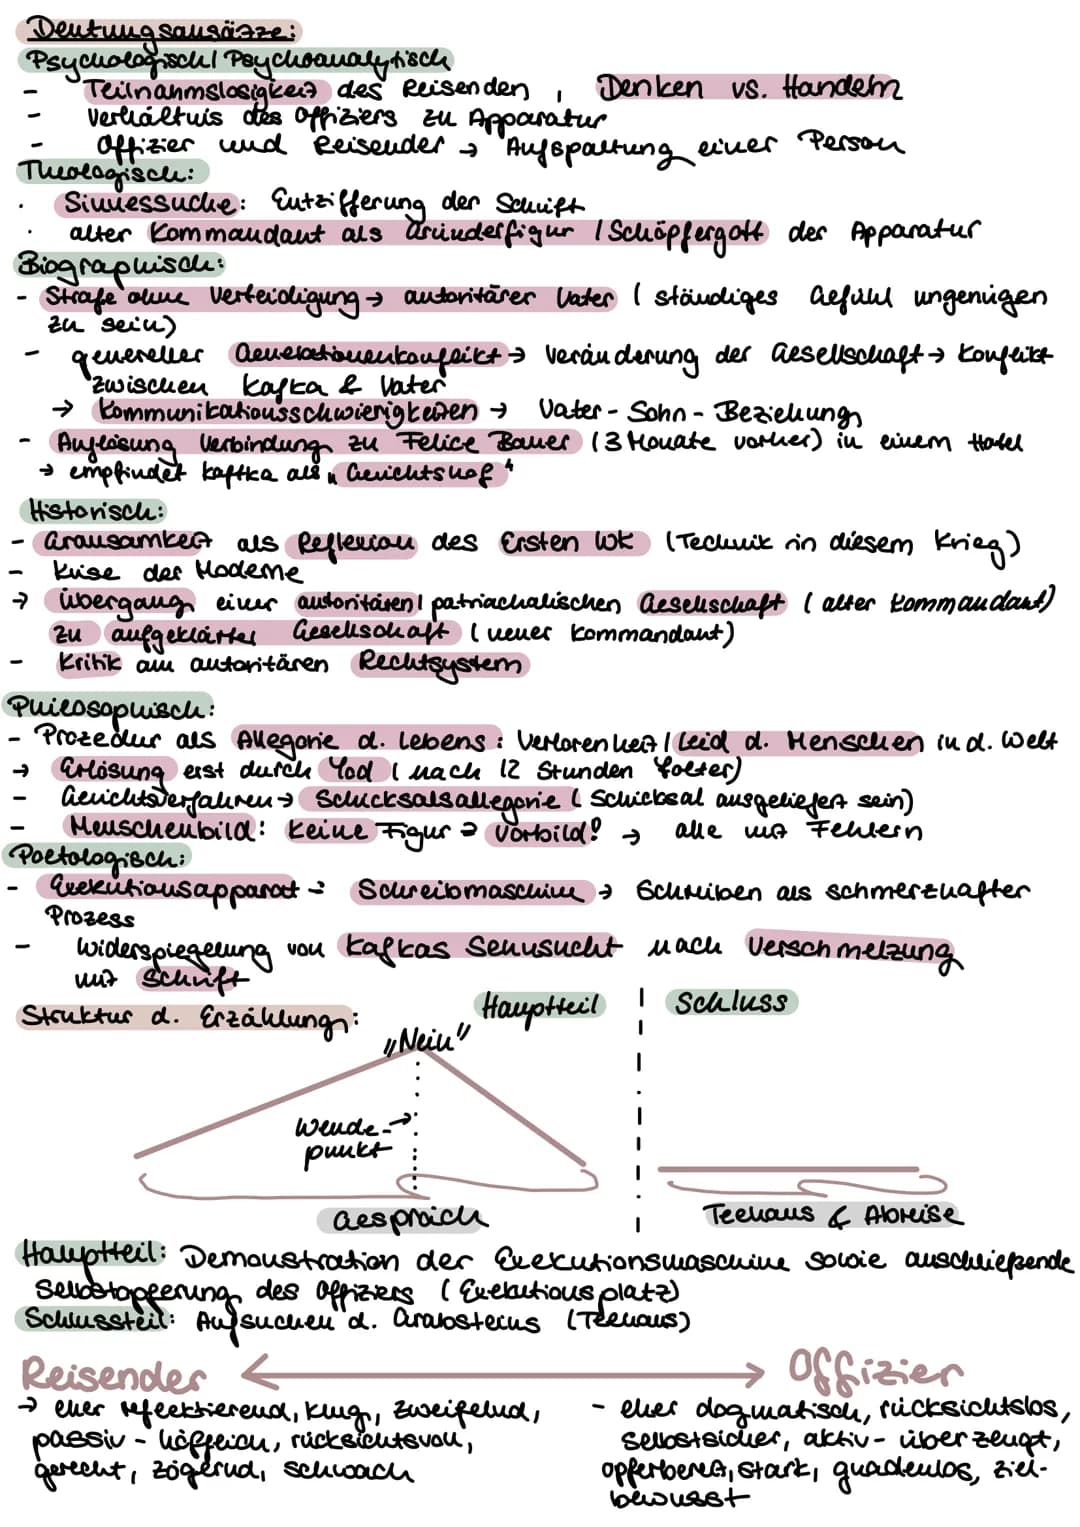 Deutungsansätze:
Psychologisch/ Psychoanalytisch
- Teilnahmslosigkeit des Reisenden, Denken vs. Handeln
- Verhältnis des Offiziers zu Apparatur
- Offizier und Reisender → Aufspaltung einer Person
Theologisch:
· Sinnessuche: Entzifferung der Schrift
· alter Kommandant als Gründerfigur / Schöpfergott der Apparatur
Biographisch:
- Strafe ohne Verteidigung → autoritärer Vater ( ständiges Gefühl ungenügen
zu sein)
- genereller Generationenkonflikt → Veränderung der Gesellschaft → Konflikt
zwischen Kafka & Vater
→ Kommunikationsschwierigkeiten → Vater-Sohn-Beziehung
- Auflösung Verbindung zu Felice Bauer (3 Monate vorher) in einem Hotel
→ empfindet Kafka als „Gerichtshof"
Historisch:
- Grausamkeit als Reflexion des Ersten WK (Technik in diesem Krieg)
- Krise der Moderne
→ Übergang einer autoritären/ patriachalischen Gesellschaft (alter Kommandant)
zu aufgeklärter Gesellschaft (neuer Kommandant)
- Kritik am autoritären Rechtsystem
Philosophisch:
- Prozedur als Allegorie d. Lebens: Verlorenheit/Leid d. Menschen in d. Welt
→ Erlösung erst durch Tod (nach 12 Stunden Folter)
- Gerichtsverfahren → Schicksalsallegorie (Schicksal ausgeliefert sein)
- Menschenbild: keine Figur = Vorbild! → alle mit Fehlern
Poetologisch:
- Exekutionsapparat = Schreibmaschine → Schreiben als schmerzhafter
Prozess
- Widerspiegelung von Kafkas Sehnsucht nach Verschmelzung
mit Schrift
Struktur d. Erzählung: Hauptteil Schluss
„Nein"
Wende- →
punkt
Gespräch Teehaus & Abreise
Hauptteil: Demonstration der Exekutionsmaschine sowie anschließende
Selbstopferung des Offiziers (Exekutionsplatz)
Schlussteil: Aufsuchen d. Grabsteins (Teehaus)
Reisender ↔ Offizier
→ eher reflektierend, klug, zweifelnd,
passiv - höflich, rücksichtsvoll,
gerecht, zögernd, schwach
- eher dogmatisch, rücksichtslos,
selbstsicher, aktiv - überzeugt,
opferbereit, stark, gnadenlos, ziel-
bewusst